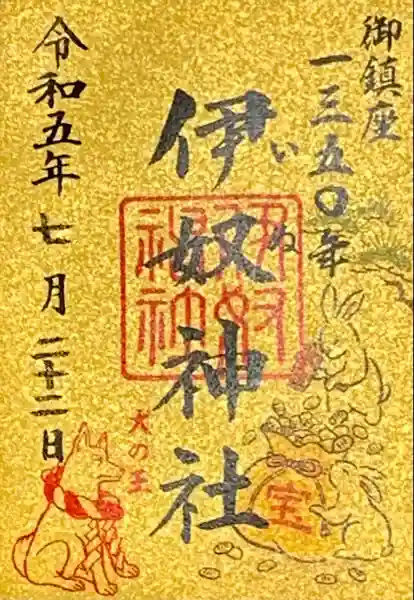 御鎮座
一三五〇年
伊奴神社
いぬ
伊奴神社
令和五年七月二十二日
犬の王
宝